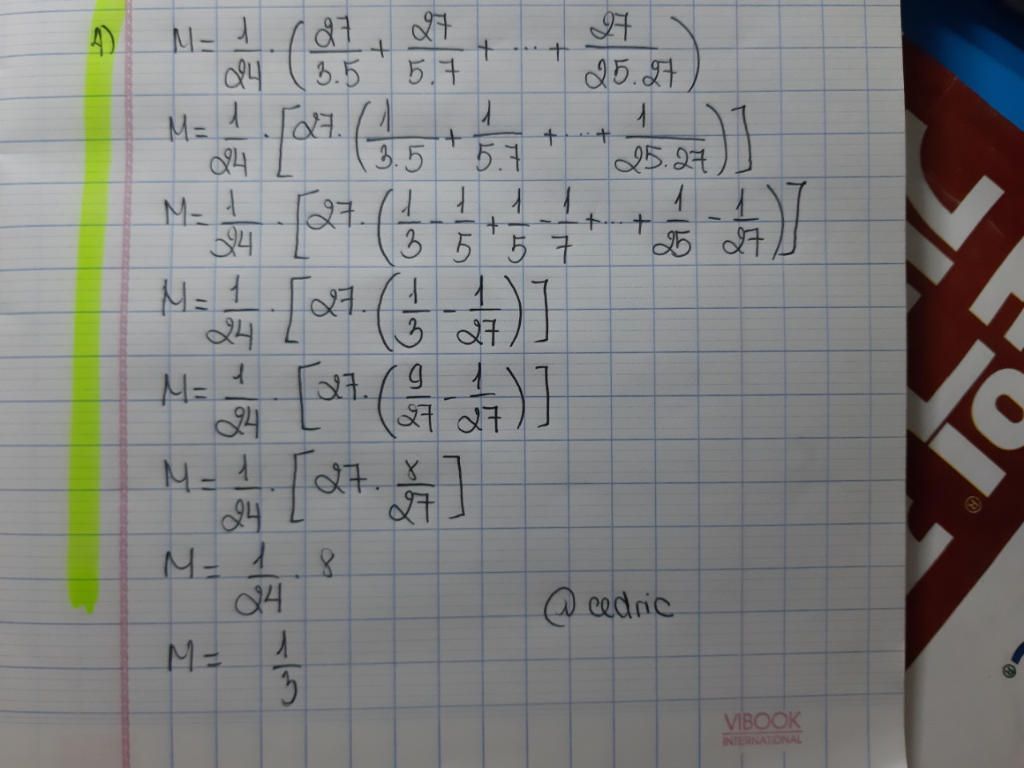 1) M = 1/24 · (27/3.5 + 27/5.7 + ... + 27/25.27)
M = 1/24 · [27 · (1/3.5 + 1/5.7 + ... + 1/25.27)]
M = 1/24 · [27 · (1/3 - 1/5 + 1/5 - 1/7 + ... + 1/25 - 1/27)]
M = 1/24 · [27 · (1/3 - 1/27)]
M = 1/24 · [27 · (9/27 - 1/27)]
M = 1/24 · [27 · 8/27]
M = 1/24 · 8
@cedric
M = 1/3
VIBOOK
INTERNATIONAL